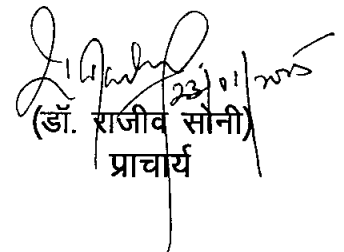 23/01/2025
(डॉ. राजीव सोनी)
प्राचार्य